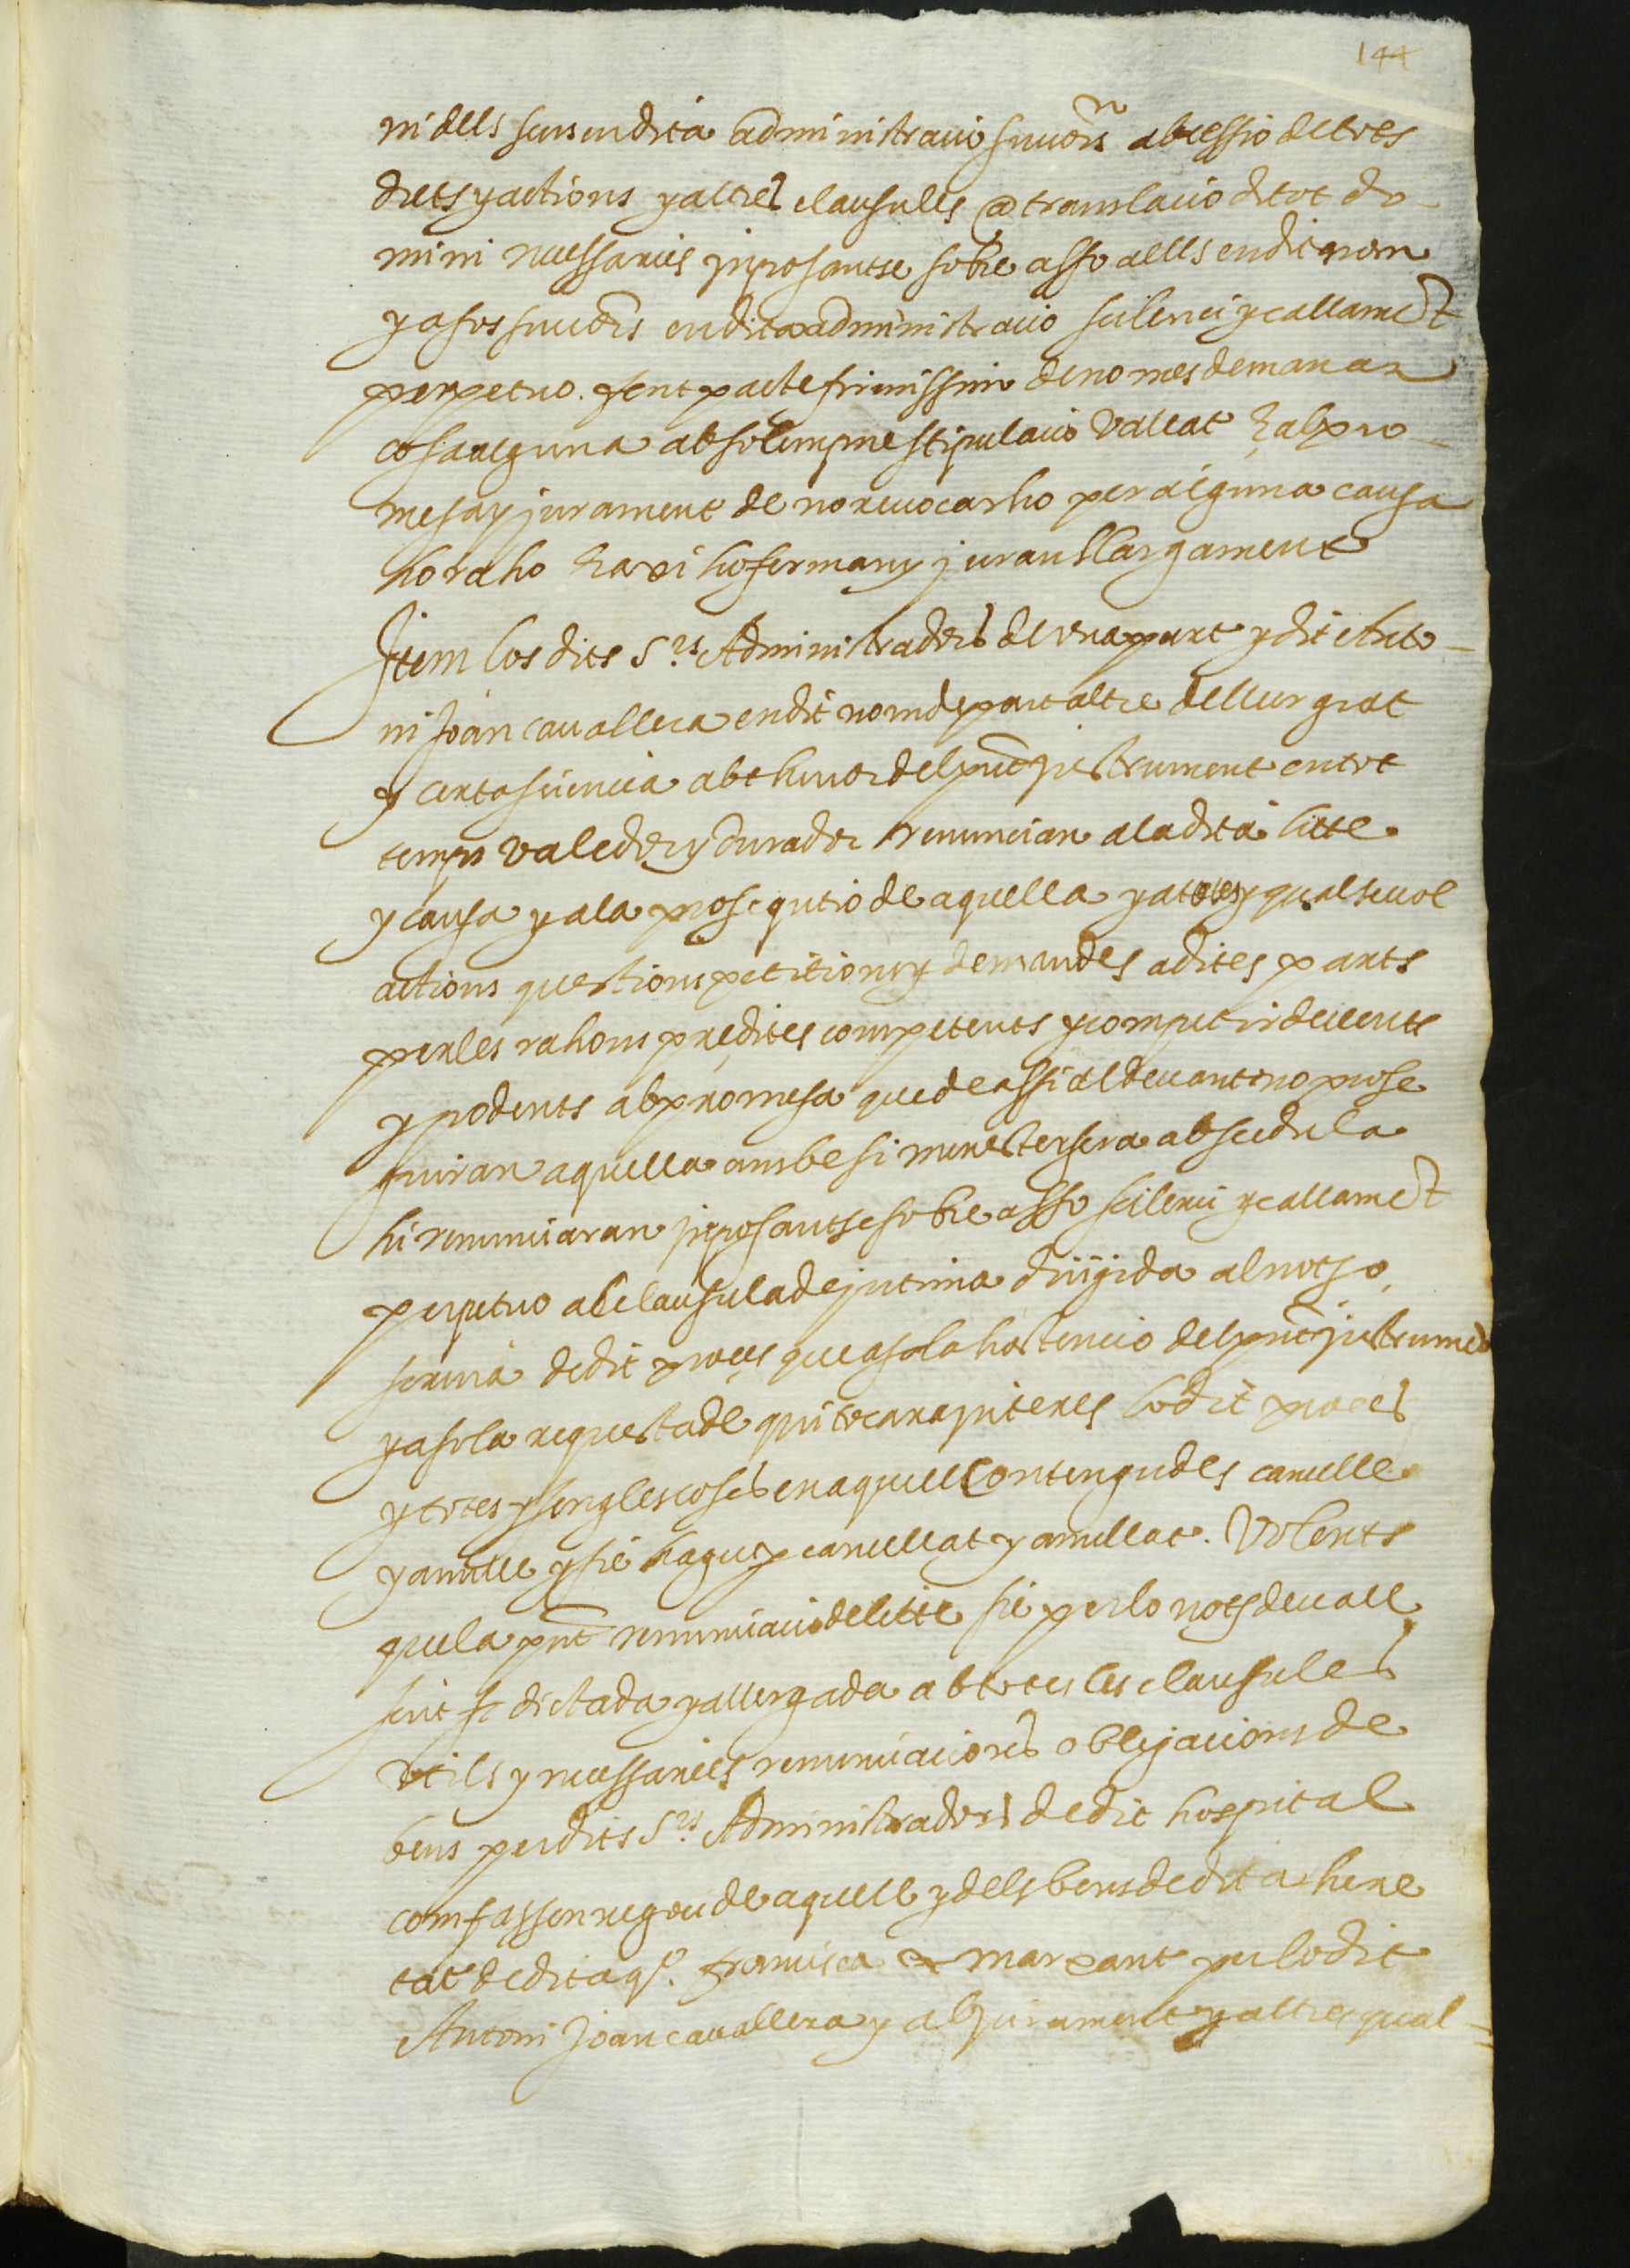 144
ni dels seus en dita administracio successors ab cessio de tots
drets y actions y altres clausules @ translacio de tot do-
mini necessaries inposantse sobre asso a ells en dit nom
y a sos successors en dita administracio scilenci y callament
perpetuo. fent pacte firmissim de no mes demanar
cosa alguna ab solempne stipulacio vallat E ab pro-
mesa y jurament de no revocarho per alguna causa
ho raho E axi ho fermany juran llargament
Item los dits Srs Administradors de una part y dit Anto-
ni Joan cavallera en dit nom de part altre de llur grat
y certa sciencia ab thenor del pnt instrument en tot
temps valedor y durador renuncian a la dita litte
y causa y a la prosequtio de aquella y a totes y qualsevol
actions questions petitions y demandes a dites parts
per les rahons predites competents y competir devents
y podents ab promesa que de assi al devant no prose
guiran aquella ans be si menester sera ab scedula
hi renunciaran inposantse sobre asso scilenci y callament
perpetuo ab clausula de intima dirigida al not y o
scriva de dit proces que a sola hostencio del pnt instrument
y a sola requesta de qui tocara interes lo dit proces
y totes y sengles coses en aquell contengudes cancelle
y anulle y sie hagut per cancellat y anullat. Volents
que la pnt renunciacio de litte sie per lo not devall
scrit dictada y allargada ab totes les clausules
utils y necessaries renunciacions obligacions de
bens per dits Srs Administradors de dit hospital
com fassen negoci de aquell y dels bens de dita here
tat de dita qº. francisca marxant per lo dit
Antoni Joan cavallera y ab jurament y altres qual-